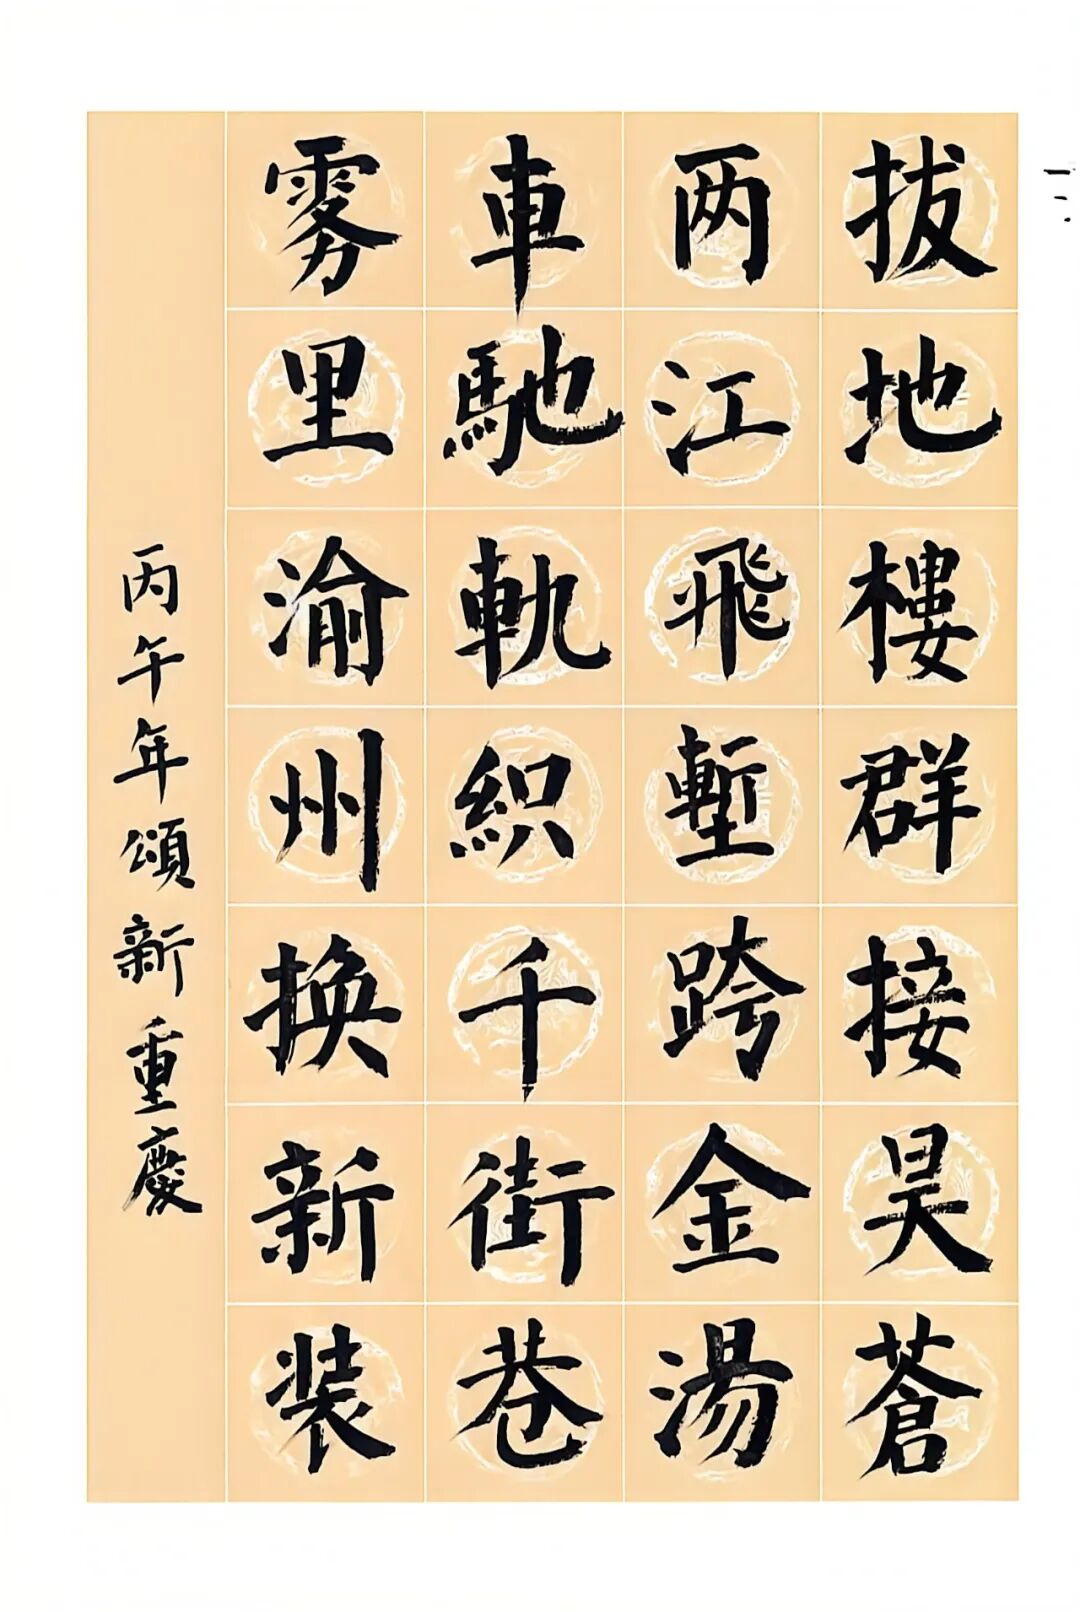 拔地樓群接昊蒼
两江飛塹跨金湯
車馳軌織千街巷
雾里渝州换新装
丙午年頌新重慶